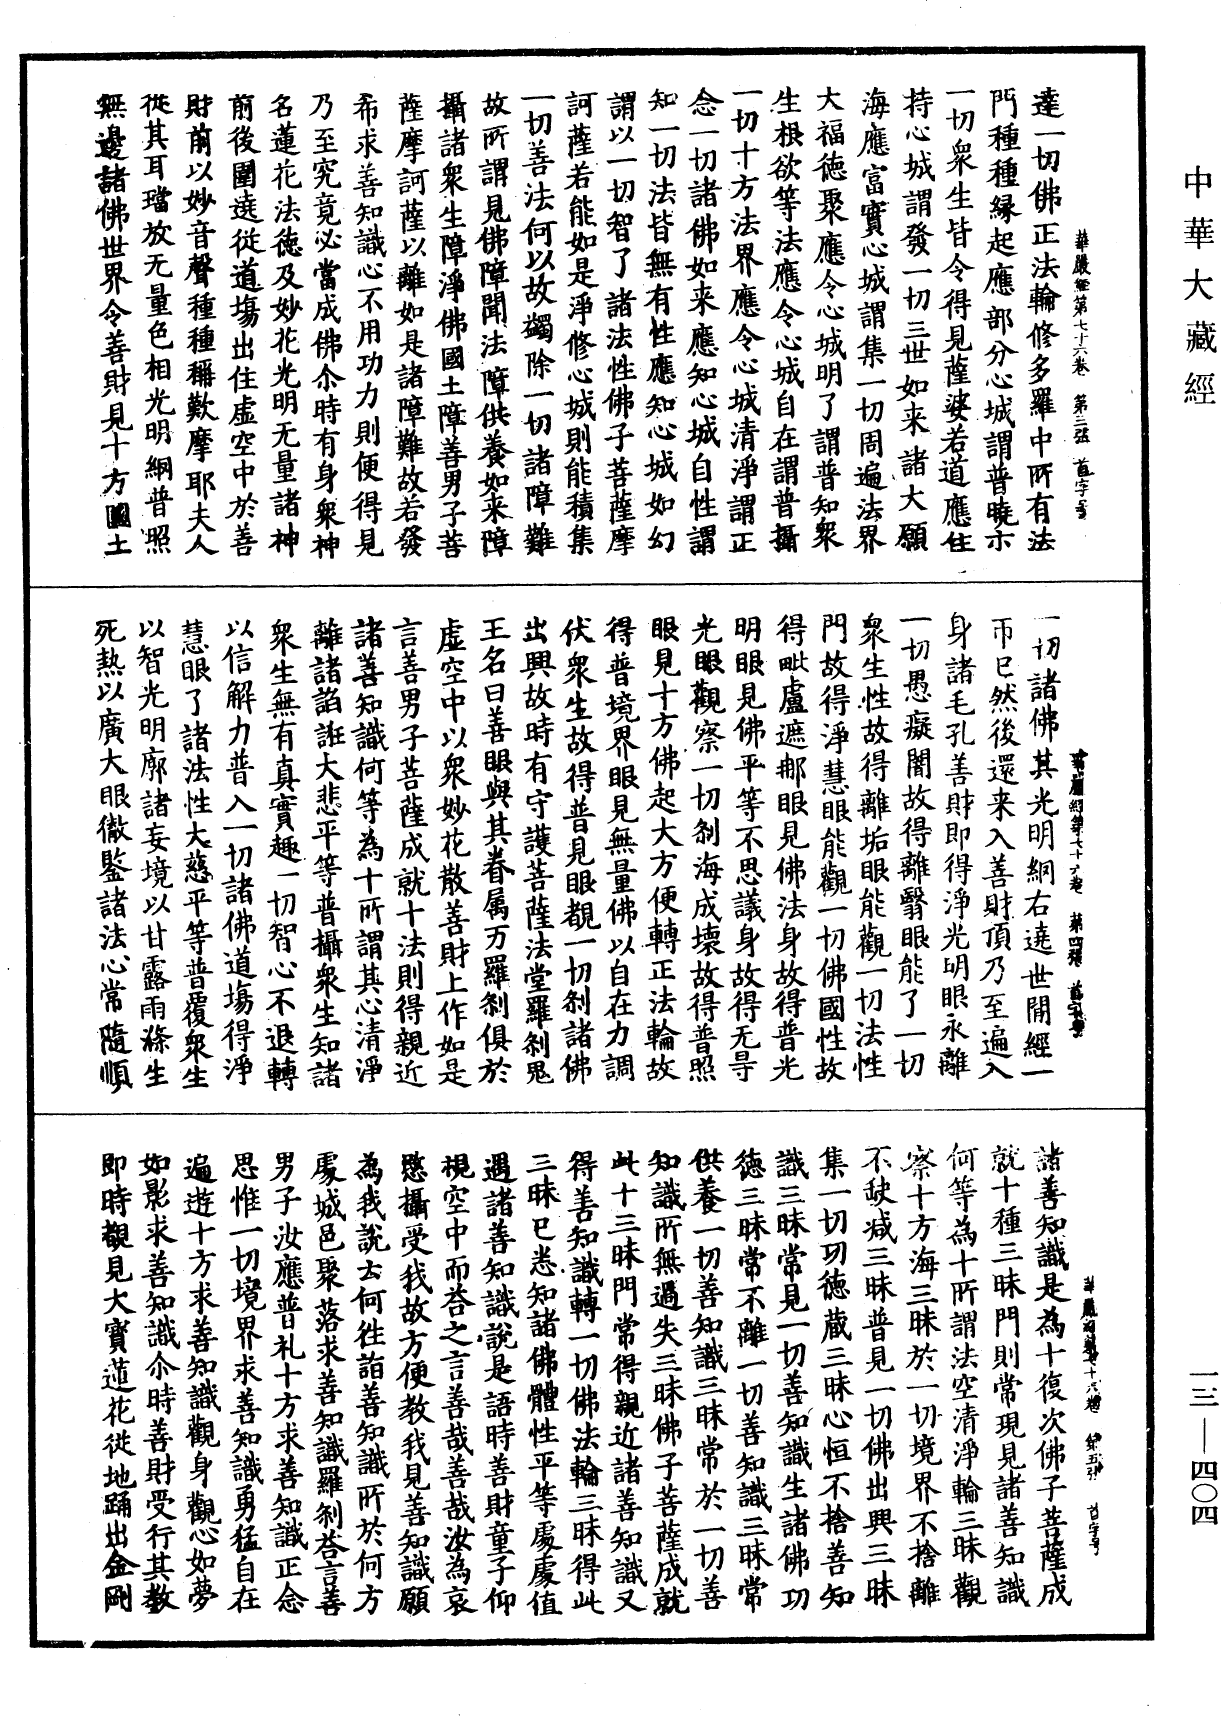 中華大藏經
華嚴經第七十六卷 第三張 首字号
達一切佛正法輪修多羅中所有法
門種種緣起應部分心城謂普曉示
一切衆生皆令得見薩婆若道應住
持心城謂發一切三世如来諸大願
海應富實心城謂集一切周遍法界
大福德聚應令心城明了謂普知衆
生根欲等法應令心城自在謂普攝
一切十方法界應令心城清淨謂正
念一切諸佛如来應知心城自性謂
知一切法皆無有性應知心城如幻
謂以一切智了諸法性佛子菩薩摩
訶薩若能如是淨修心城則能積集
一切善法何以故蠲除一切諸障難
故所謂見佛障聞法障供養如来障
攝諸衆生障淨佛國土障善男子菩
薩摩訶薩以離如是諸障難故若發
希求善知識心不用功力則便得見
乃至究竟必當成佛尒時有身衆神
名蓮花法德及妙花光明无量諸神
前後圍遶從道場出住虛空中於善
財前以妙音聲種種稱歎摩耶夫人
從其耳璫放无量色相光明網普照
無邊諸佛世界令善財見十方國土
華嚴經第七十六卷 第四張 首字号
一切諸佛其光明網右遶世閒經一
帀已然後還来入善財頂乃至遍入
身諸毛孔善財即得淨光明眼永離
一切愚癡闇故得離翳眼能了一切
衆生性故得離垢眼能觀一切法性
門故得淨慧眼能觀一切佛國性故
得毗盧遮那眼見佛法身故得普光
明眼見佛平等不思議身故得无导
光眼觀察一切剎海成壞故得普照
眼見十方佛起大方便轉正法輪故
得普境界眼見無量佛以自在力調
伏衆生故得普見眼覩一切剎諸佛
出興故時有守護菩薩法堂羅剎鬼
王名曰善眼與其眷属万羅剎俱於
虛空中以衆妙花散善財上作如是
言善男子菩薩成就十法則得親近
諸善知識何等為十所謂其心清淨
離諸諂誑大悲平等普攝衆生知諸
衆生無有真實趣一切智心不退轉
以信解力普入一切諸佛道塲得淨
慧眼了諸法性大慈平等普覆衆生
以智光明廓諸妄境以甘露雨滌生
死熱以廣大眼徹鑒諸法心常隨順
華嚴經第七十六卷 第五張 首字号
諸善知識是為十復次佛子菩薩成
就十種三昧門則常現見諸善知識
何等為十所謂法空清淨輪三昧觀
察十方海三昧於一切境界不捨離
不缺减三昧普見一切佛出興三昧
集一切功德藏三昧心恒不捨善知
識三昧常見一切善知識生諸佛功
德三昧常不離一切善知識三昧常
供養一切善知識三昧常於一切善
知識所無過失三昧佛子菩薩成就
此十三昧門常得親近諸善知識又
得善知識轉一切佛法輪三昧得此
三昧已悉知諸佛體性平等處處值
遇諸善知識說是語時善財童子仰
視空中而荅之言善哉善哉汝為哀
愍攝受我故方便教我見善知識願
為我說云何往詣善知識所於何方
處城邑聚落求善知識羅剎荅言善
男子汝應普礼十方求善知識正念
思惟一切境界求善知識勇猛自在
遍遊十方求善知識觀身觀心如夢
如影求善知識尒時善財受行其教
即時覩見大寶蓮花從地踊出金剛
一三—四〇四